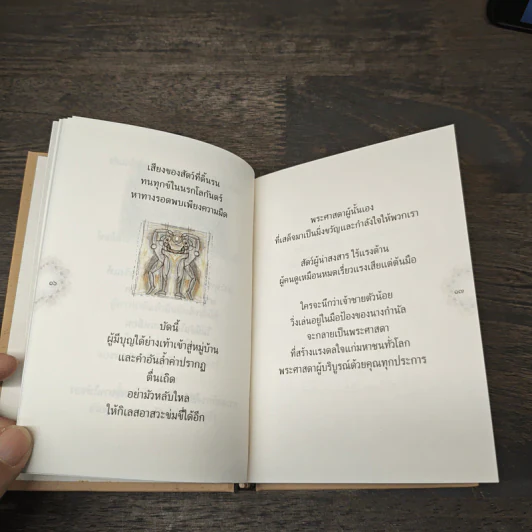 เสียงของสัตว์ที่ดิ้นรน
ทนทุกข์ในนรกโลกันตร์
หาทางรอดพบเพียงความมืด
บัดนี้
ผู้มีบุญได้ย่างเท้าเข้าสู่หมู่บ้าน
และคำอันล้ำค่าปรากฏ
ตื่นเถิด
อย่ามัวหลับใหล
ให้กิเลสอาสวะข่มขี่ได้อีก
พระศาสดาผู้นั้นเอง
ที่เสด็จมาเป็นมิ่งขวัญและกำลังใจให้พวกเรา
สัตว์ผู้น่าสงสาร ไร้แรงต้าน
ผู้คนดูเหมือนหมดเรี่ยวแรงเสียแต่ต้นมือ
ใครจะนึกว่าเจ้าชายตัวน้อย
วิ่งเล่นอยู่ในมือป้องของนางกำนัล
จะกลายเป็นพระศาสดา
ที่สร้างแรงดลใจแก่มหาชนทั่วโลก
พระศาสดาผู้บริบูรณ์ด้วยคุณทุกประการ